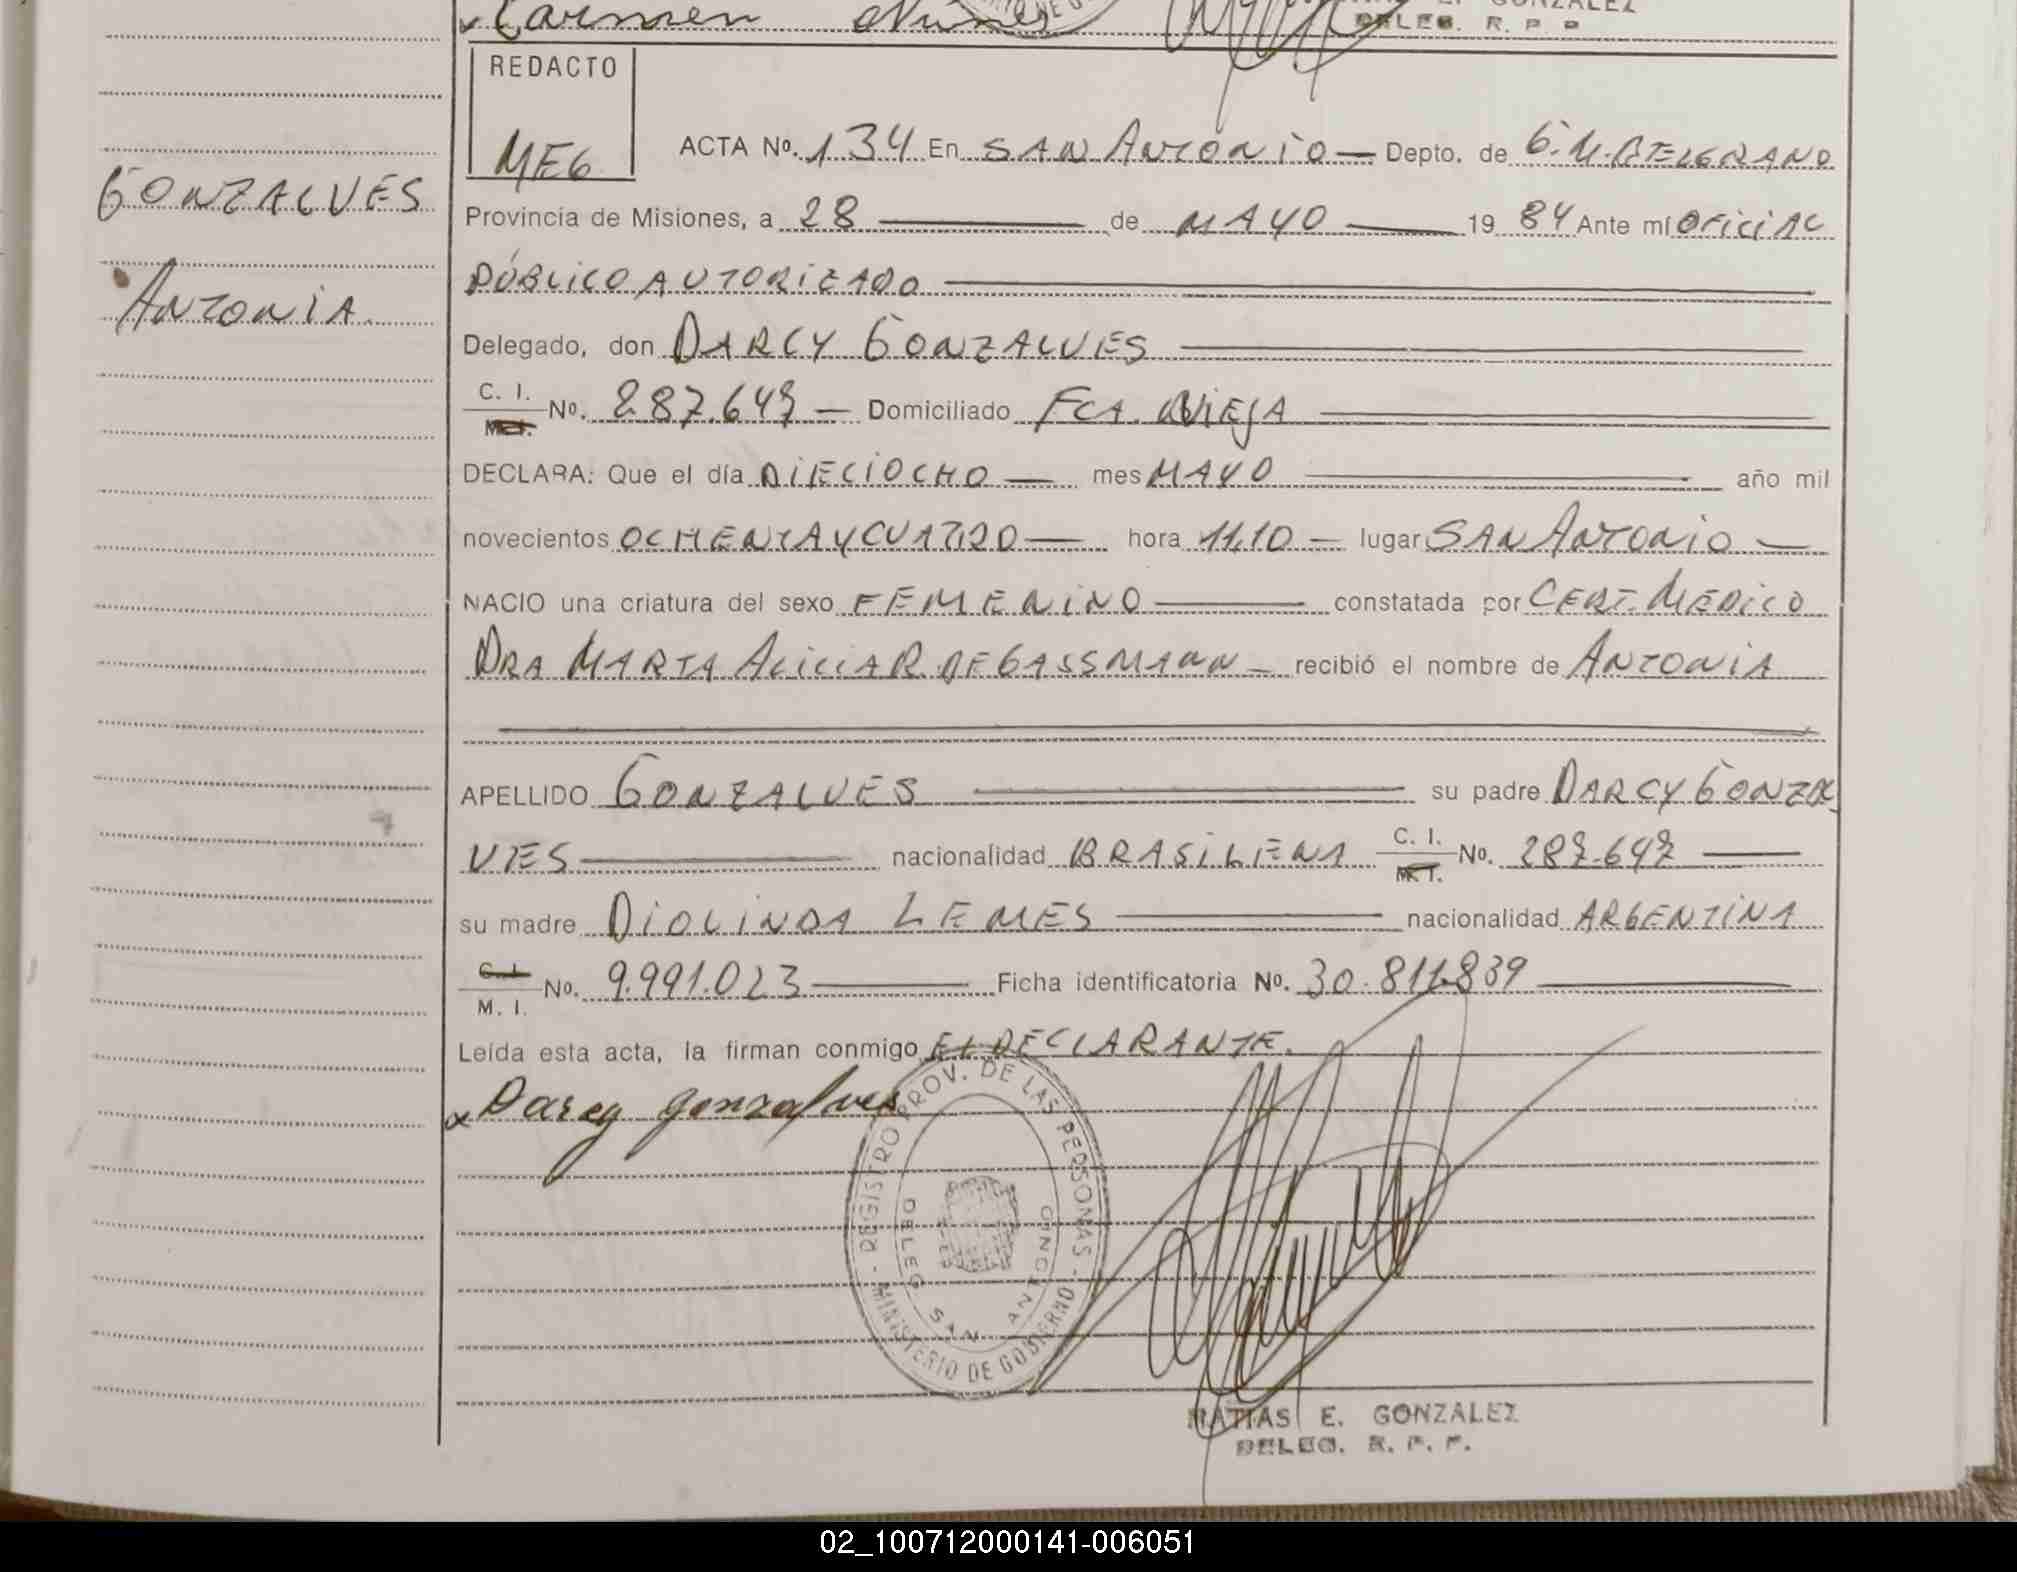 Carmen Nuñes
DELEG. R. P. P
REDACTO
MEG
ACTA Nº. 134 En SAN ANTONIO — Depto. de G. M. BELGRANO
GONZALVES
Provincia de Misiones, a 28 — de MAYO — 19 84 Ante mí OFICIAL
PÚBLICO AUTORIZADO
ANTONIA
Delegado, don DARCY GONZALVES
C. I.
M. I.
Nº. 287.647 — Domiciliado FCA. VIEJA
DECLARA: Que el día DIECIOCHO — mes MAYO — año mil
novecientos OCHENTA Y CUATRO — hora 11,10 — lugar SAN ANTONIO —
NACIO una criatura del sexo FEMENINO — constatada por CERT. MÉDICO
DRA MARTA ALICIA R. DE GASSMANN — recibió el nombre de ANTONIA
APELLIDO GONZALVES — su padre DARCY GONZAL
VES — nacionalidad BRASILENA C. I. Nº. 287.647 —
M. I.
su madre DIOLINDA LEMES — nacionalidad ARGENTINA
C. I.
M. I.
Nº. 9.991.023 — Ficha identificatoria Nº. 30.811.839 —
Leída esta acta, la firman conmigo EL DECLARANTE.
x Darcy gonzalves
REGISTRO PROV. DE LAS PERSONAS - MINISTERIO DE GOBIERNO -
DELEG SAN ANTONIO
MATIAS E. GONZALEZ
DELEG. R. P. P.
02_100712000141-006051